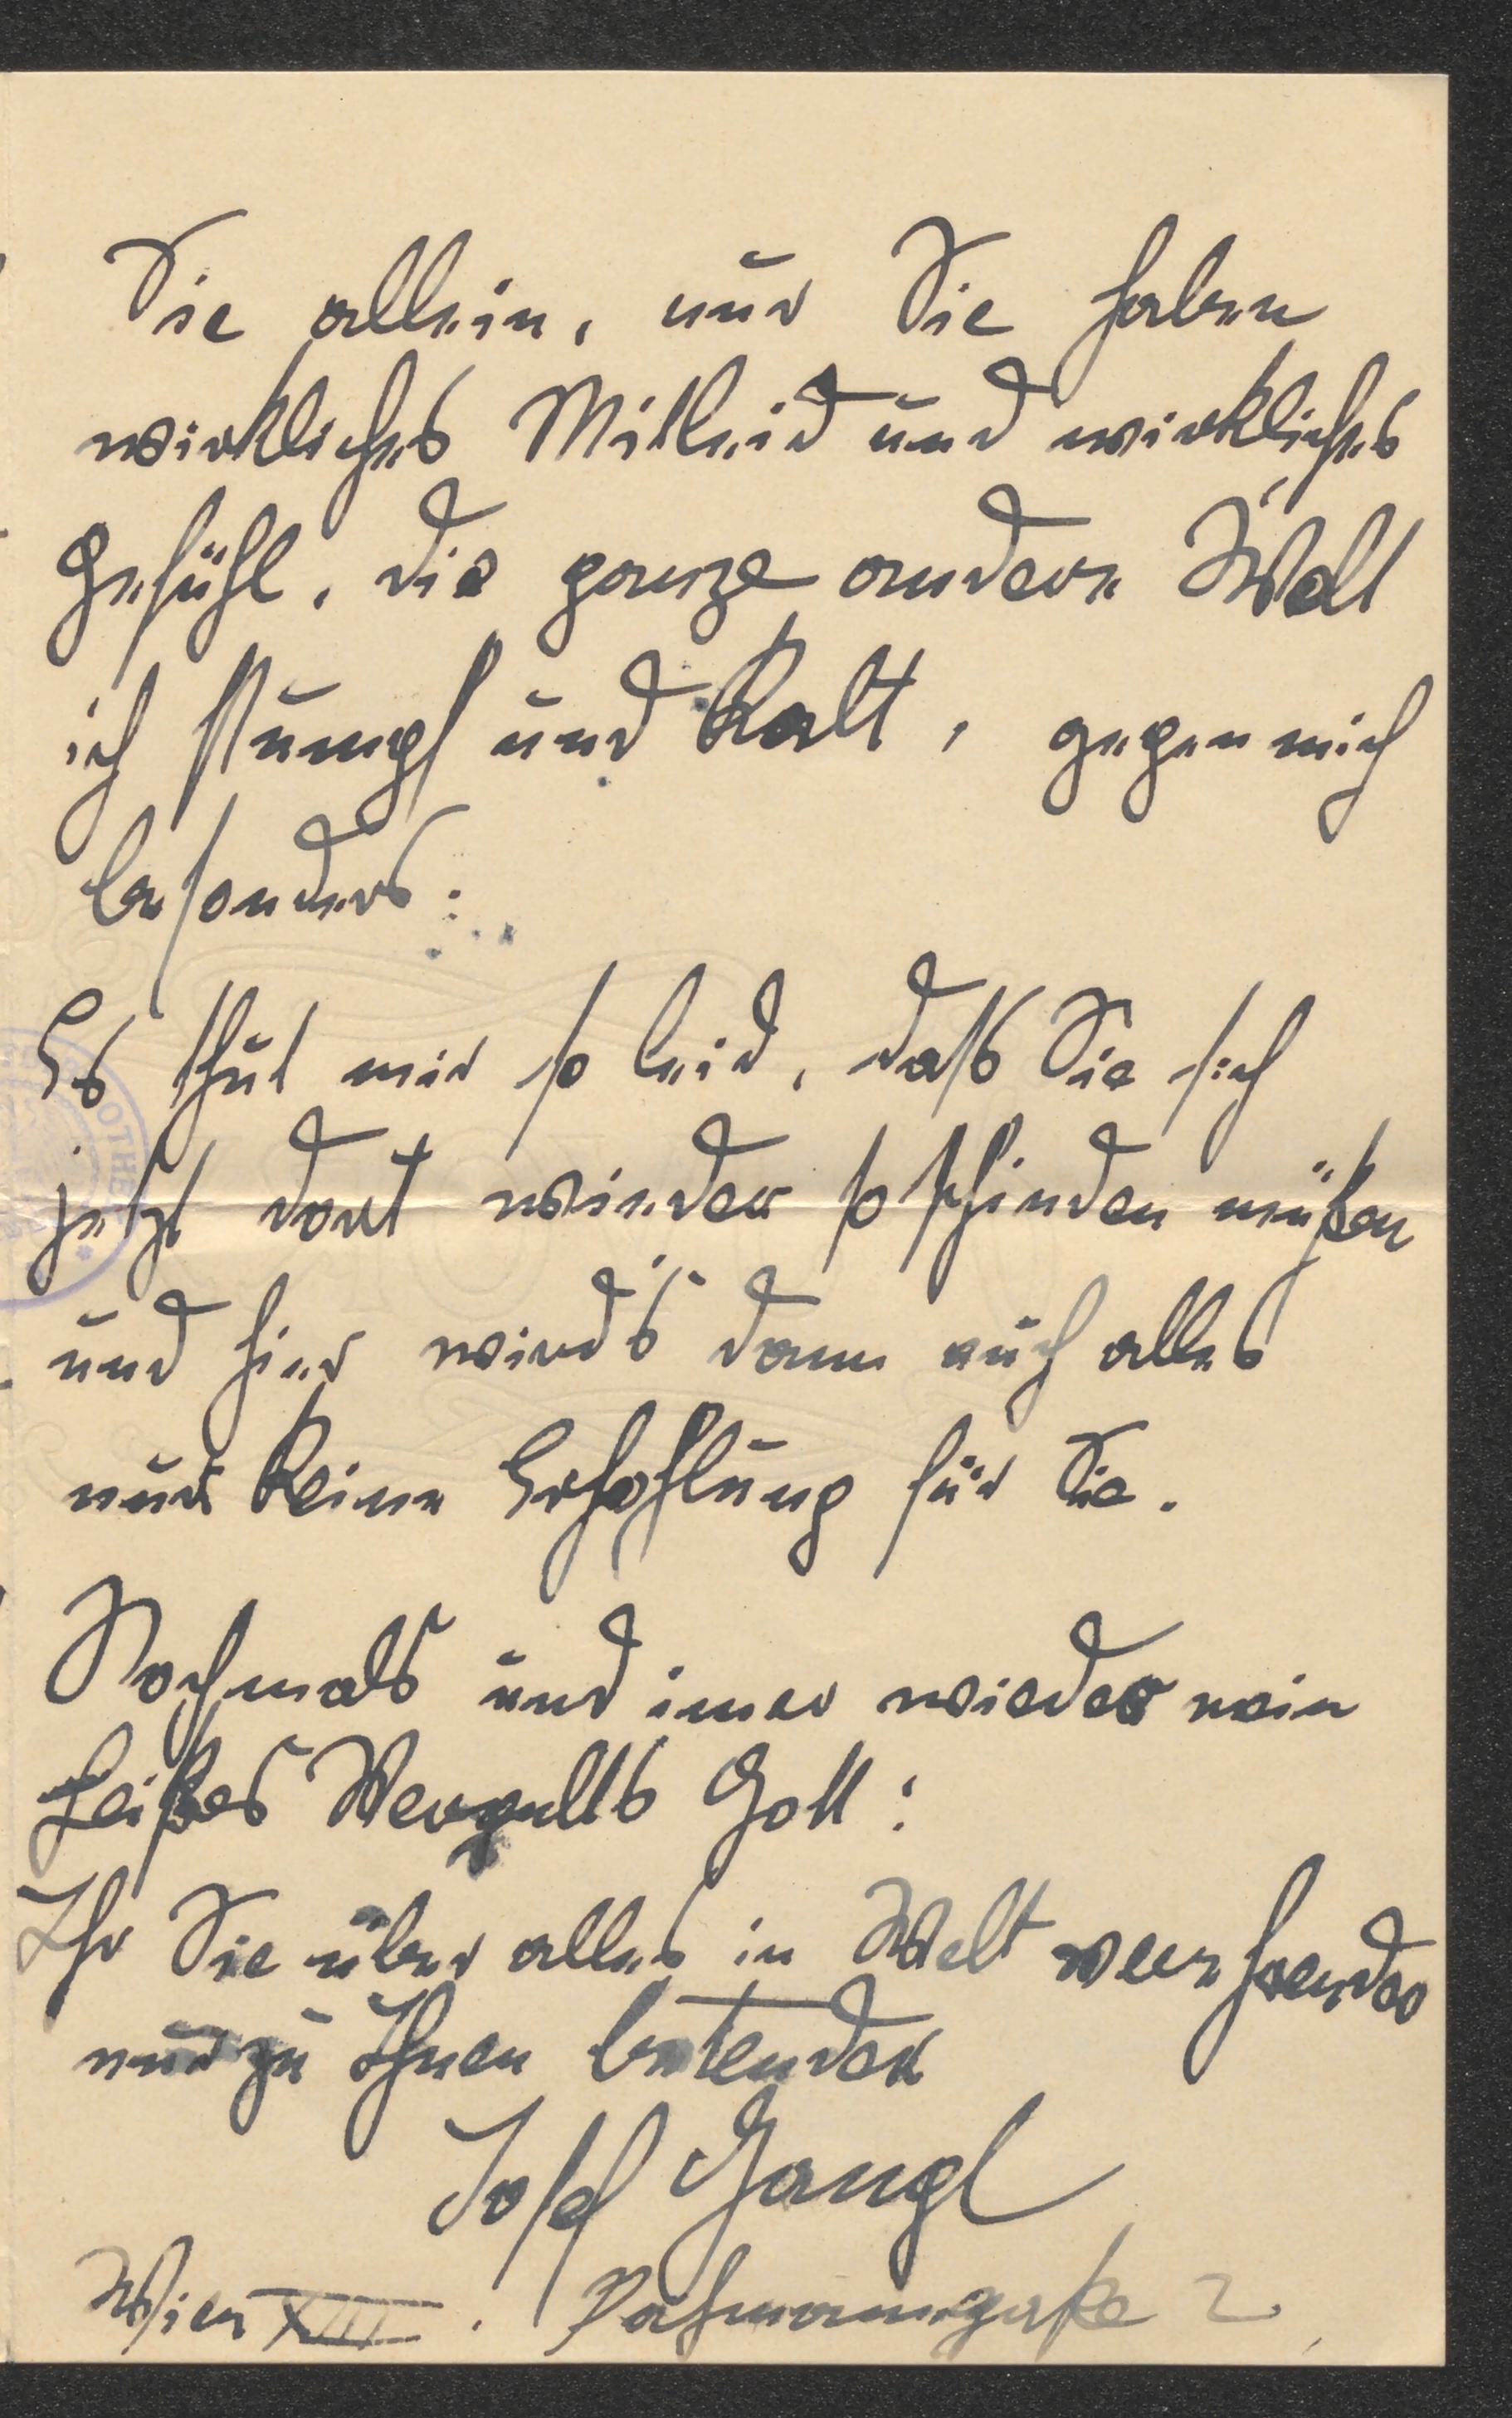 Sie allein, nur Sie haben
wirkliches Mitleid und wirkliches
Gefühl, die ganze andere Welt
ist stumpf und kalt, gegen mich
besonders.
Es thut mir so leid, daß Sie sich
jetzt dort wieder so schinden müßen
und hier wird's dann auch alles
nur keine Erhohlung für Sie.
Nochmals und imer wieder mein
heißes Vergelts Gott!
Ihr Sie über alles in Welt verehrender
nur zu Ihnen betender
Josef Gangl
Wien XIII. 2.
OTHE